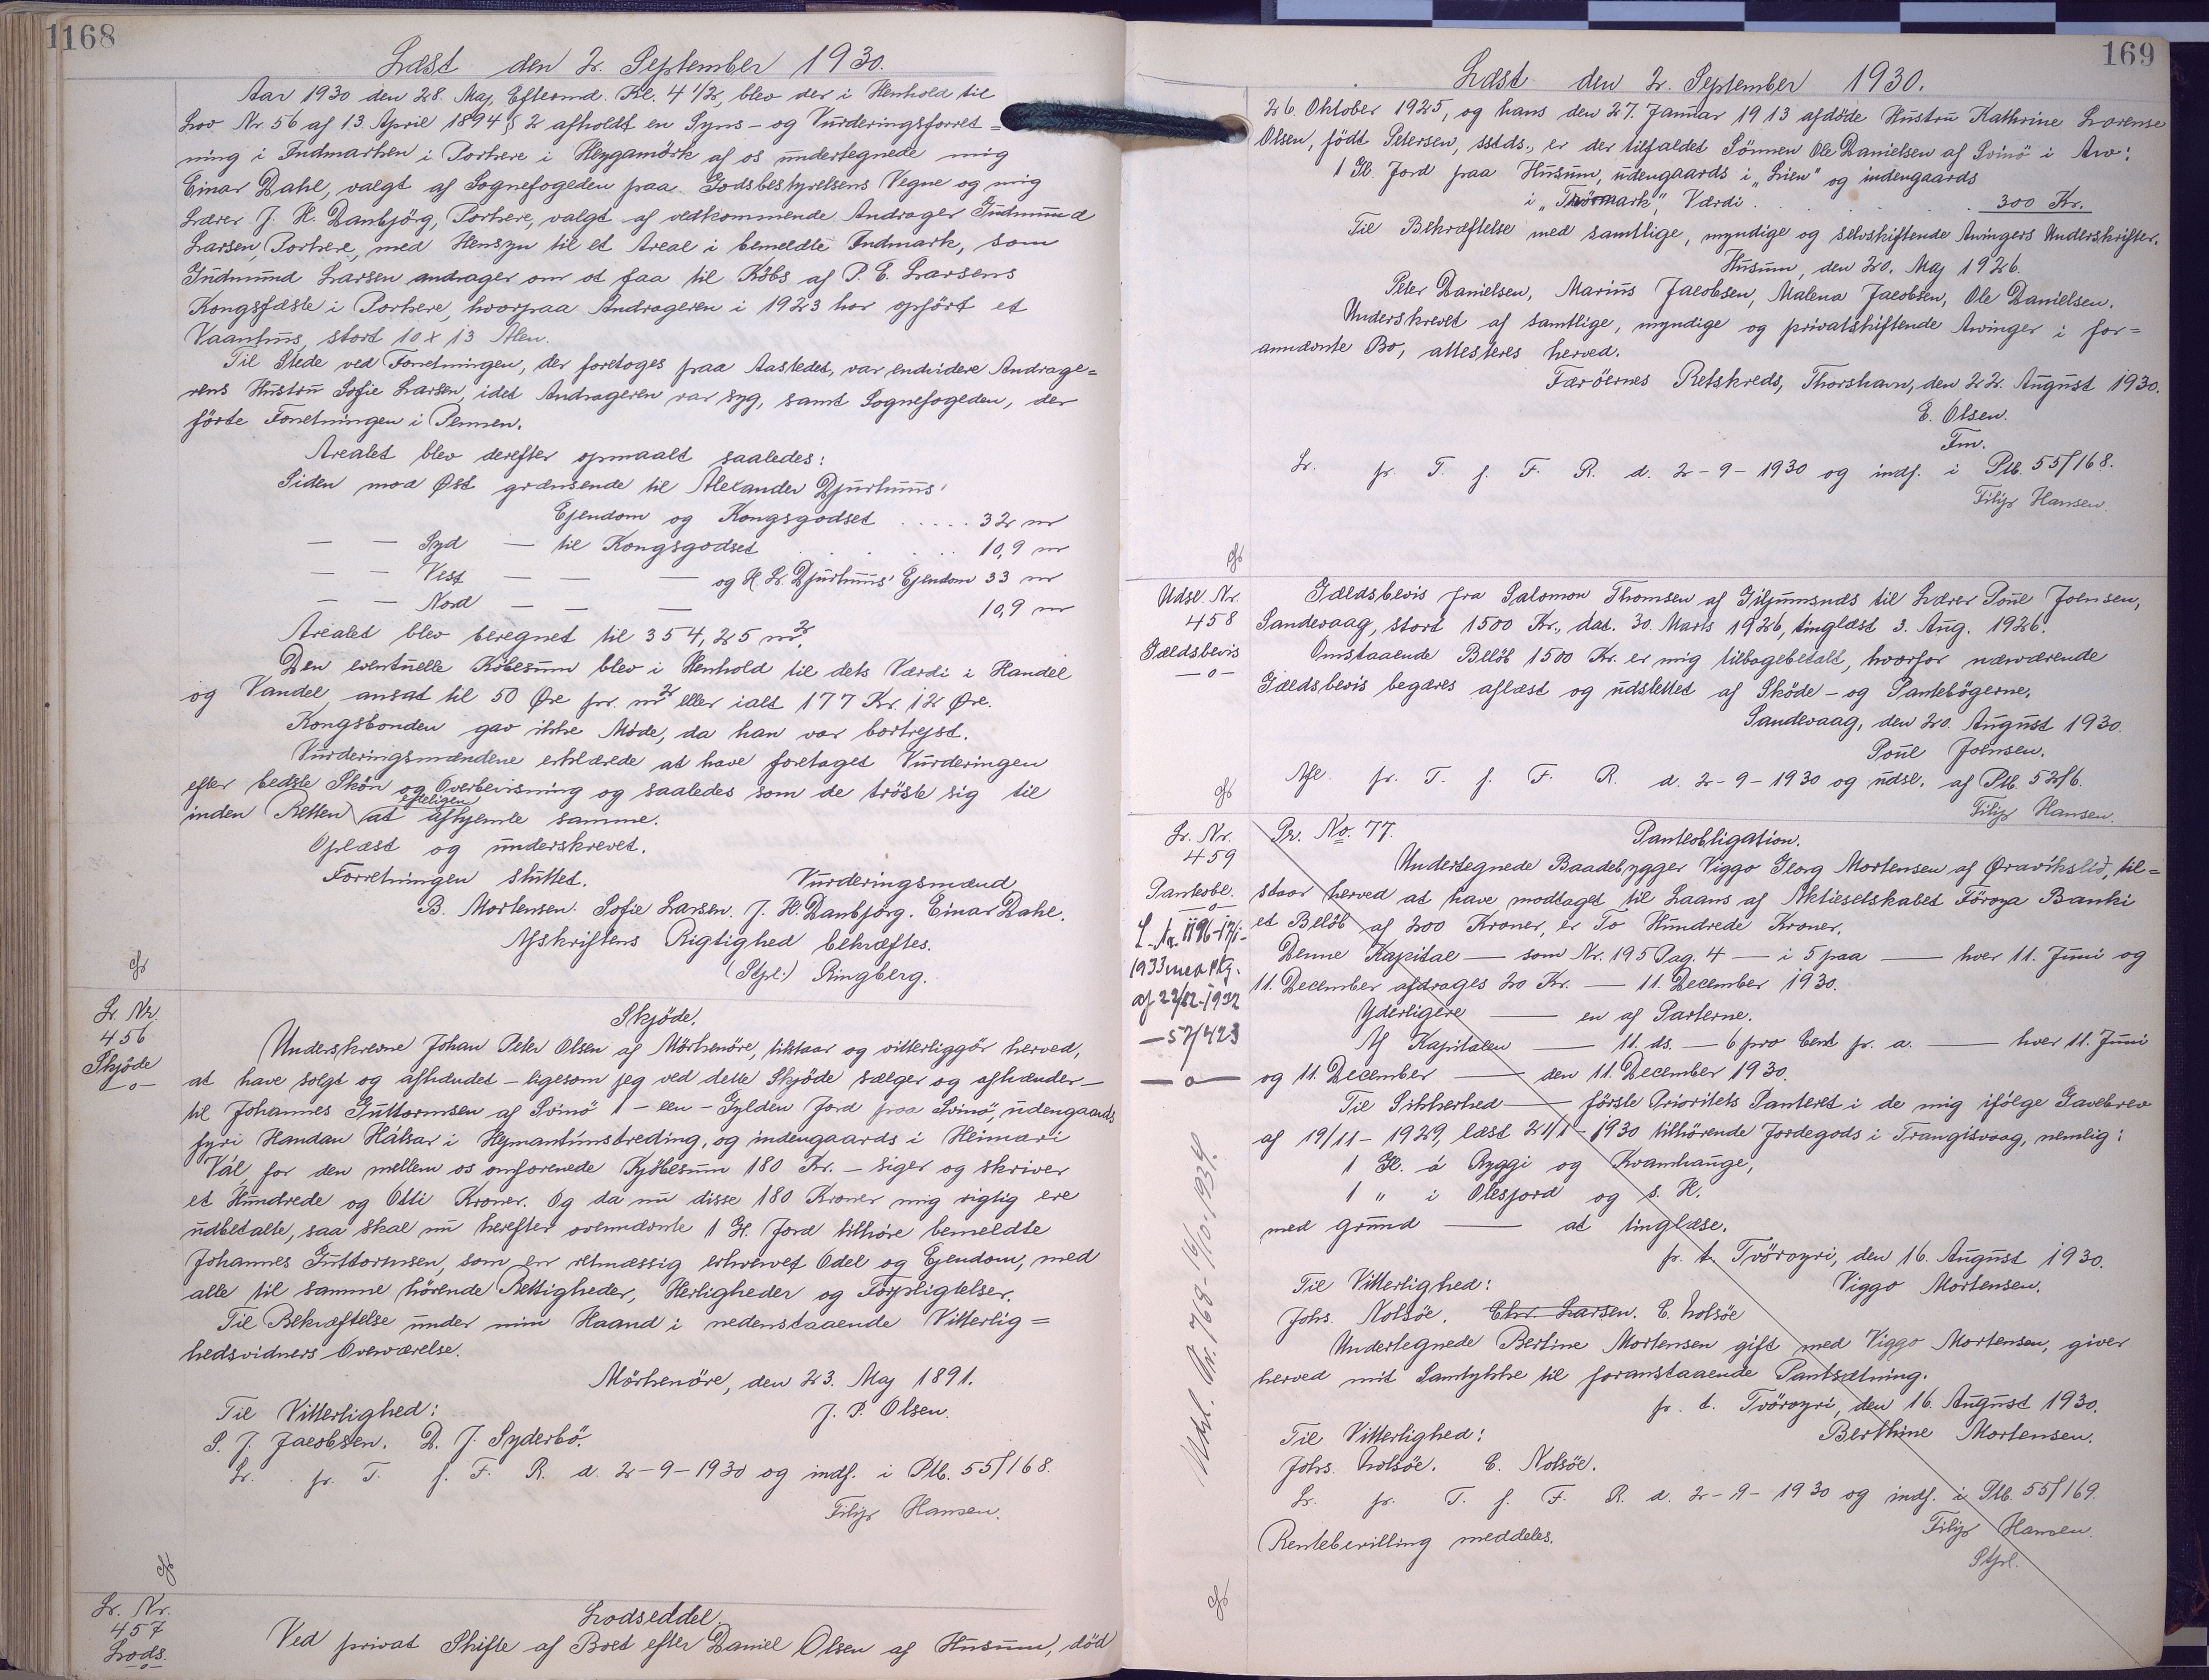 1168
Læst den 2. September 1930.
Aar 1930 den 28. Maj, Eftermd. Kl. 4 1/2, blev der i Henhold til
Lov Nr. 56 af 13. April 1894 § 2 afholdt en Syns- og Vurderingsforret=
ning i Indmarken i Porkere i Heygamörk af os undertegnede mig
Einar Dahl, valgt af Sognefogeden paa Godsbestyrelsens Vegne og mig
Lærer J. H. Danbjörg, Porkere, valgt af vedkommende Andrager Gudmund
Larsen, Porkere, med Hensyn til et Areal i bemeldte Indmark, som
Gudmund Larsen andrager om at faa til Købs af P. E. Larsens
Kongsfæste i Porkere, hvorpaa Andrageren i 1923 har opført et
Vaanhus, stort 10 x 13 Alen.
Til Stede ved Forretningen, der foretoges paa Aastedet, var endvidere Andrage=
rens Hustru Sofie Larsen, idet Andrageren var syg, samt Sognefogeden, der
förte Forretningen i Pennen.
Arealet blev derefter opmaalt saaledes:
Siden mod Øst grænsende til Alexander Djurhuus'
Ejendom og Kongsgodset ..... 32 m
— — Syd — til Kongsgodset . . . . . 10,9 m
— — Vest — — — og H. L. Djurhuus' Ejendom 33 m
— — Nord — — — 10,9 m
Arealet blev beregnet til 354,25 m².
Den eventuelle Købesum blev i Henhold til dets Værdi i Handel
og Vandel ansat til 50 Øre pr. m² eller ialt 177 Kr. 12 Øre.
Kongsbonden gav ikke Møde, da han var bortrejst.
Vurderingsmændene erklærede at have foretaget Vurderingen
efter bedste Skön og Overbevisning og saaledes som de tröste sig til
inden Retten at edeligen afhjemle samme.
Oplæst og underskrevet.
Forretningen sluttet. Vurderingsmænd
B. Mortensen. Sofie Larsen. J. H. Danbjörg. Einar Dahl.
Afskriftens Rigtighed bekræftes.
(Stpl.) Ringberg.
Lr. Nr.
456
Skjöde
—o—
Skjöde.
Underskrevne Johan Peter Olsen af Mörkenöre, tilstaar og vitterliggör herved,
at have solgt og afhændet – ligesom jeg ved dette Skjöde sælger og afhænder –
til Johannes Guttormsen af Svinö 1 – een – Gylden Jord paa Svinö, udengaards
fyri Handan Hálsar i Heymantúnstreding, og indengaards i Heimari
Vál, for den mellem os omforenede Kjöbesum 180 Kr. – siger og skriver
et Hundrede og Otti Kroner. Og da nu disse 180 Kroner mig rigtig ere
udbetalte, saa skal nu herefter ovennævnte 1 Gl. Jord tilhöre bemeldte
Johannes Guttormsen, som en retmæssig erhvervet Odel og Ejendom, med
alle til samme hörende Rettigheder, Herligheder og Forpligtelser.
Til Bekræftelse under min Haand i nedenstaaende Vitterlig=
hedsvidners Overværelse.
Mörkenöre, den 23. Maj 1891.
Til Vitterlighed: J. P. Olsen.
S. J. Jacobsen. D. J. Syderbö.
Lr. pr. T. f. F. R. d. 2-9-1930 og indf. i Ptb. 55/168.
Filip Hansen.
Lr. Nr.
457
Lods.
—o—
Lodseddel.
Ved privat Skifte af Boet efter Daniel Olsen af Husum, död
169
Læst den 2. September 1930.
26. Oktober 1925, og hans den 27. Januar 1913 afdöde Hustru Kathrine Lorense
Olsen, födt Petersen, sstds., er der tilfaldet Sönnen Ole Danielsen af Svinö i Arv:
1 Gl. Jord paa Husum, udengaards i „Lien" og indengaards
i „Trörmark", Værdi . . . . 300 Kr.
Til Bekræftelse med samtlige, myndige og selvskiftende Arvingers Underskrifter.
Husum, den 20. Maj 1926.
Peter Danielsen, Marius Jacobsen, Malena Jacobsen, Ole Danielsen.
Underskrevet af samtlige, myndige og privatskiftende Arvinger i for=
annævnte Bo, attesteres herved.
Færöernes Retskreds, Thorshavn, den 22. August 1930.
E. Olsen.
Fm.
Lr. pr. T. f. F. R. d. 2-9-1930 og indf. i Ptb. 55/168.
Filip Hansen.
Udsl. Nr.
458
Gældsbevis
—o—
Gældsbevis fra Salomon Thomsen af Giljumsnæs til Lærer Poul Joensen,
Sandevaag, stort 1500 Kr., dat. 30. Marts 1926, tinglæst 3. Aug. 1926.
Omstaaende Belöb 1500 Kr. er mig tilbagebetalt, hvorfor nærværende
Gældsbevis begæres aflæst og udslettet af Sköde- og Pantebögerne.
Sandevaag, den 20. August 1930.
Poul Joensen.
Afl. pr. T. f. F. R. d. 2-9-1930 og udsl. af Ptb. 52/6.
Filip Hansen.
Lr. Nr.
459
Panteobl.
—o—
L. Nr. 1196-17/1-
1933 med Ptg.
af 22/12-1932
—57/423
—o—
Udsl. Nr. 768-16/10-1934.
Pr. No. 77. Panteobligation.
Undertegnede Baadebygger Viggo Georg Mortensen af Øravíkslíð, til=
staar herved at have modtaget til Laans af Aktieselskabet Föroya Banki
et Belöb af 200 Kroner, er To Hundrede Kroner.
Denne Kapital — som Nr. 195 Pag. 4 — i 5 paa — hver 11. Juni og
11. December afdrages 20 Kr. — 11. December 1930.
Yderligere — en af Parterne.
Af Kapitalen — 11. ds. — 6 pro Cent pr. a. — hver 11. Juni
og 11. December — den 11. December 1930.
Til Sikkerhed — förste Prioritets Panteret i de mig ifölge Gavebrev
af 19/11-1929, læst 21/1-1930 tilhörende Jordegods i Trangisvaag, nemlig:
1 Gl. á Ryggi og Kvamhauge,
1 „ i Olesjord og s. H.
med grund — at tinglæse.
p. t. Tvöroyri, den 16. August 1930.
Til Vitterlighed: Viggo Mortensen.
Johs. Nolsöe. Chr. Larsen. C. Nolsöe
Undertegnede Bertine Mortensen gift med Viggo Mortensen, giver
herved mit Samtykke til foranstaaende Pantsætning.
p. t. Tvöroyri, den 16. August 1930.
Til Vitterlighed: Berthine Mortensen.
Johs. Nolsöe. C. Nolsöe.
Lr. pr. T. f. F. R. d. 2-9-1930 og indf. i Ptb. 55/169.
Filip Hansen.
Rentebevilling meddeles. Stpl.